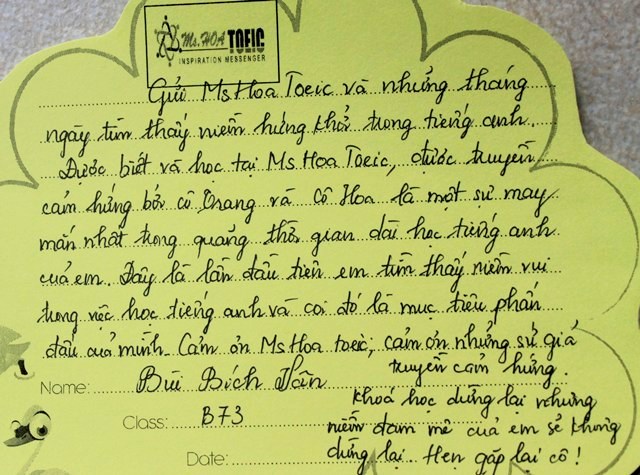 Ms. HOA TOEIC
INSPIRATION MESSENGER
Gửi Ms Hoa Toeic và những tháng
ngày tìm thấy niềm hứng khởi trong tiếng anh.
Được biết và học tại Ms Hoa Toeic, được truyền
cảm hứng bởi cô Trang và cô Hoa là một sự may
mắn nhất trong quãng thời gian dài học tiếng anh
của em. Đây là lần đầu tiên em tìm thấy niềm vui
trong việc học tiếng anh và coi đó là mục tiêu phấn
đấu của mình. Cảm ơn Ms Hoa toeic, cảm ơn những sứ giả
truyền cảm hứng.
Name: Bùi Bích Vân
khoá học dừng lại nhưng
Class: B73
niềm đam mê của em sẽ không
dừng lại. Hẹn gặp lại cô!
Date: